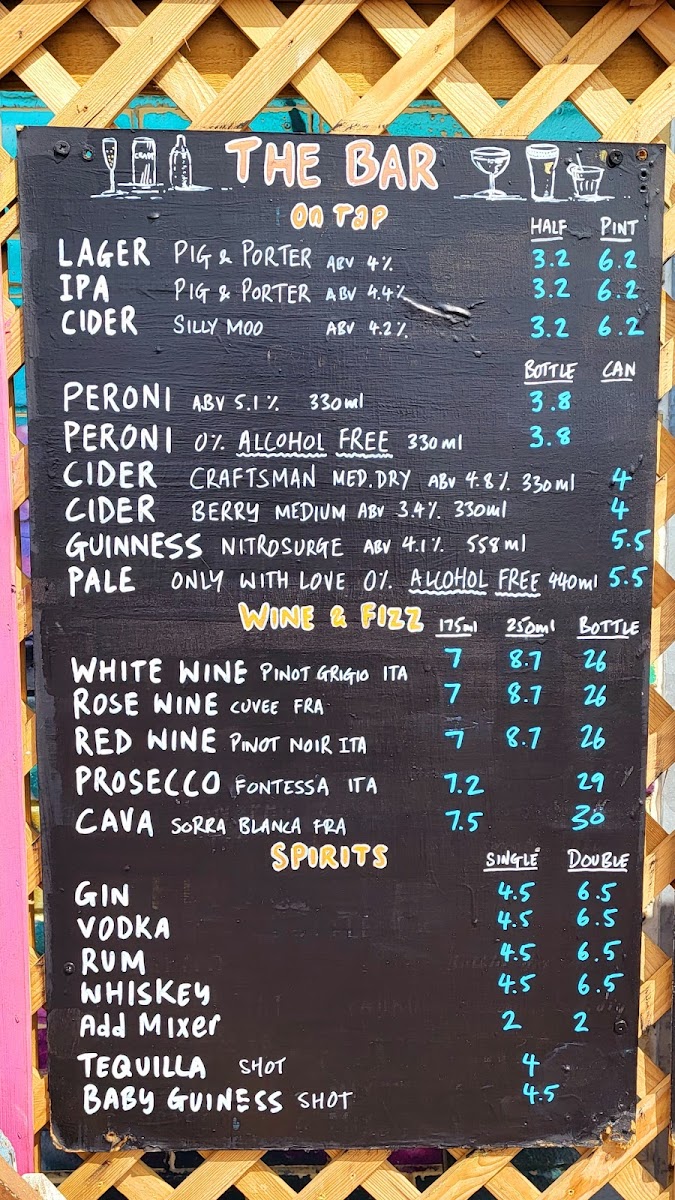 THE BAR
On Tap
HALF PINT
LAGER PIG & PORTER ABV 4% 3.2 6.2
IPA PIG & PORTER ABV 4.4% 3.2 6.2
CIDER SILLY MOO ABV 4.2% 3.2 6.2
BOTTLE CAN
PERONI ABV 5.1% 330ml 3.8
PERONI 0% ALCOHOL FREE 330ml 3.8
CIDER CRAFTSMAN MED.DRY ABV 4.8% 330ml 4
CIDER BERRY MEDIUM ABV 3.4% 330ml 4
GUINNESS NITROSURGE ABV 4.1% 558ml 5.5
PALE ONLY WITH LOVE 0% ALCOHOL FREE 440ml 5.5
WINE & FIZZ 175ml 250ml BOTTLE
WHITE WINE PINOT GRIGIO ITA 7 8.7 26
ROSE WINE CUVEE FRA 7 8.7 26
RED WINE PINOT NOIR ITA 7 8.7 26
PROSECCO FONTESSA ITA 7.2 29
CAVA SORRA BLANCA FRA 7.5 30
SPIRITS SINGLE DOUBLE
GIN 4.5 6.5
VODKA 4.5 6.5
RUM 4.5 6.5
WHISKEY 4.5 6.5
Add Mixer 2 2
TEQUILLA SHOT 4
BABY GUINESS SHOT 4.5